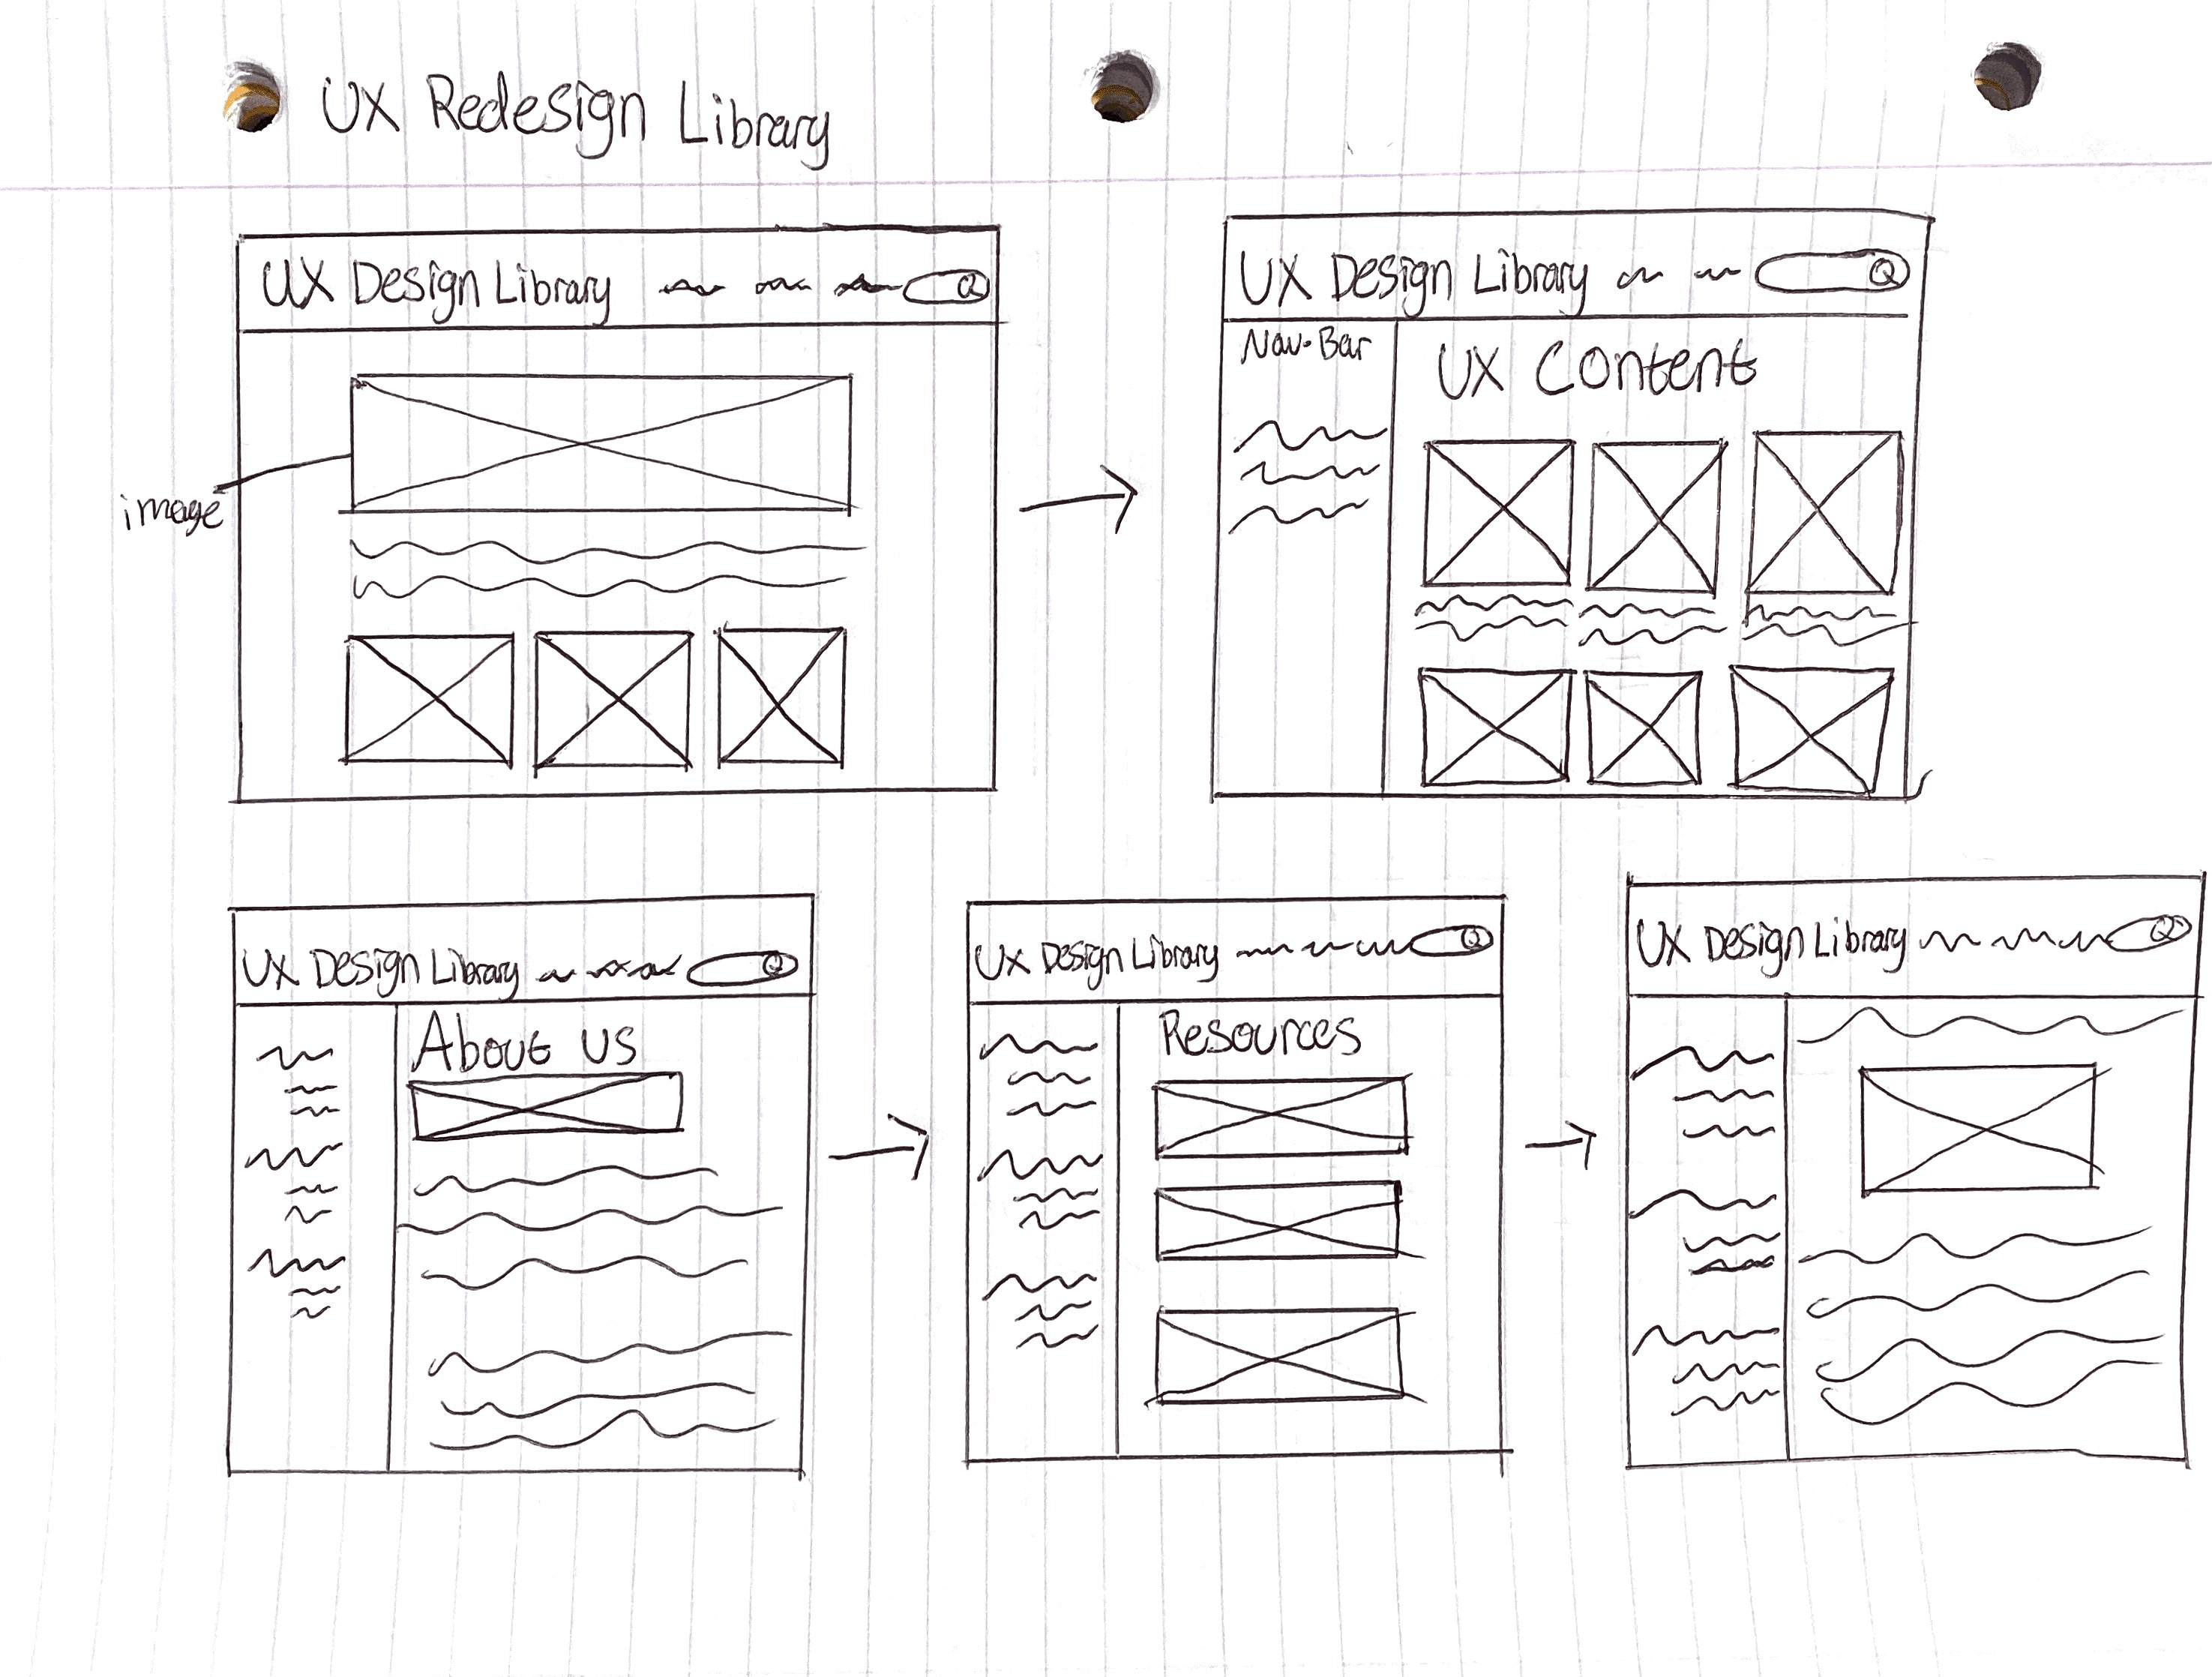 UX Redesign Library
UX Design Library
image
UX Design Library
Nav-Bar
UX Content
UX Design Library
About us
UX Design Library
Resources
UX Design Library